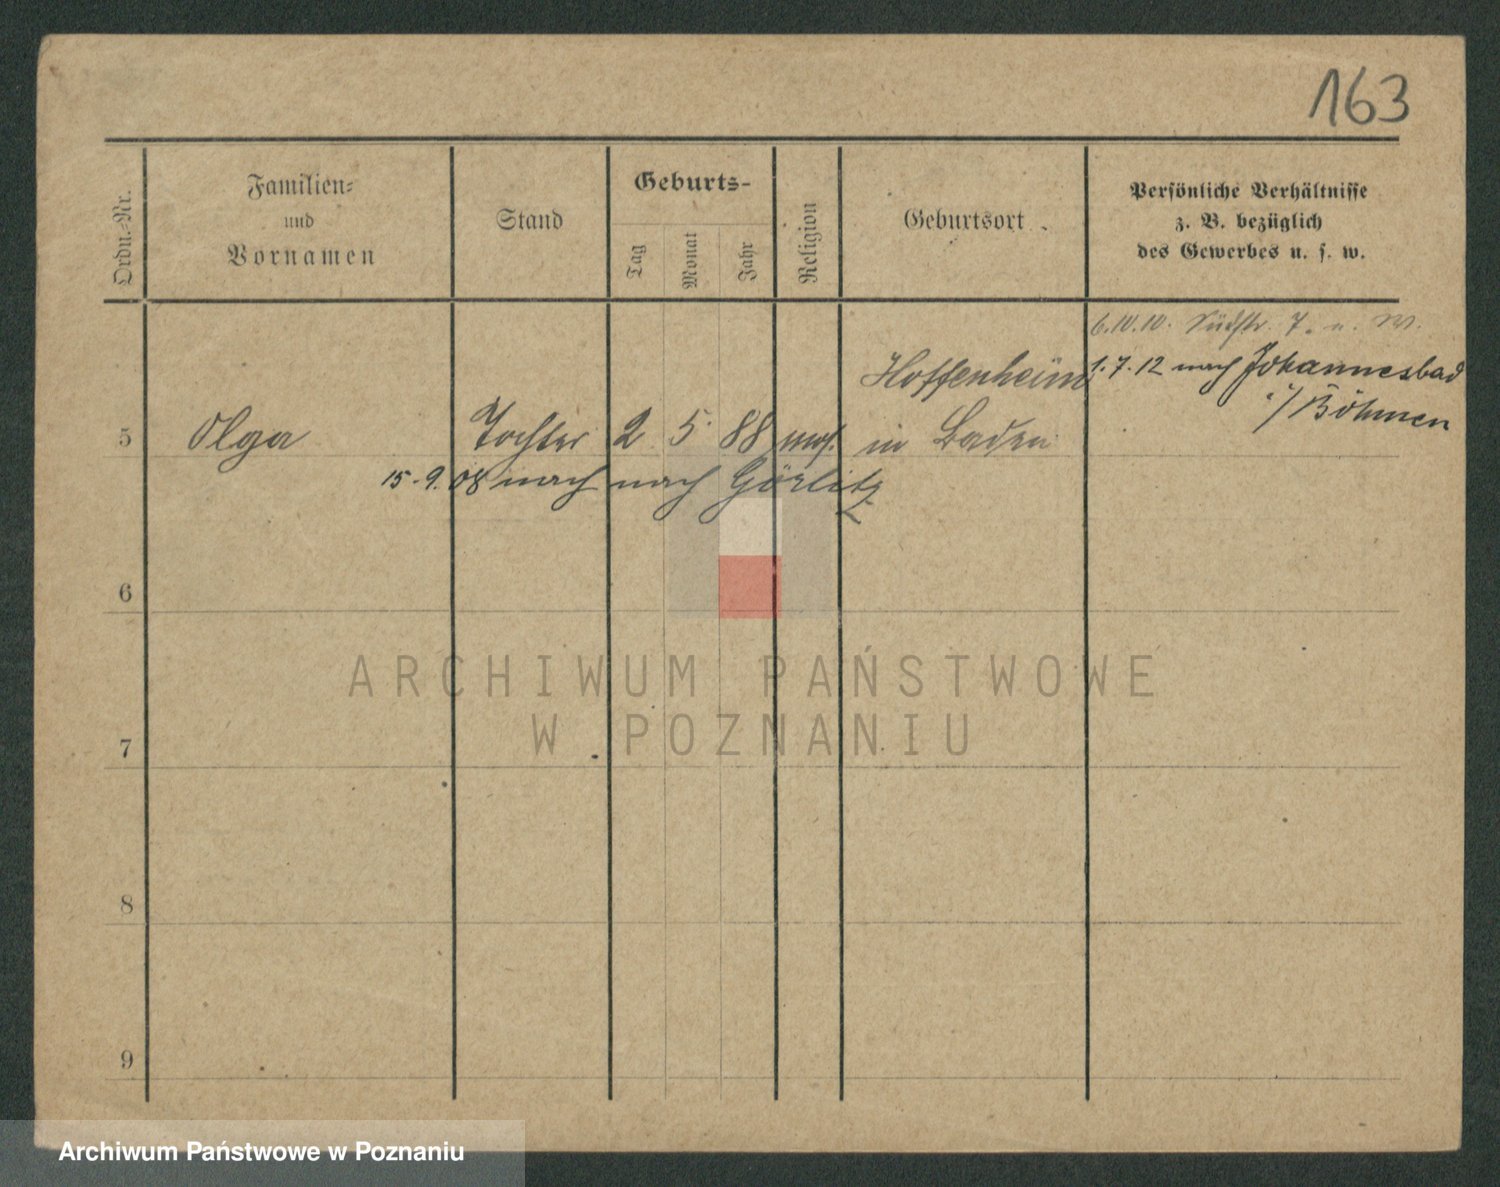 163
Ordn.-Nr.
Familien-
und
Vornamen
Stand
Geburts-
Tag
Monat
Jahr
Religion
Geburtsort
Persönliche Verhältnisse
z. B. bezüglich
des Gewerbes u. s. w.
6.10.10. Südstr. 7.
Hoffenheim
1.7.12 nach Johannesbad
i/Böhmen
5 Olga Tochter 2 5 88 mos. in Baden
15.9.08 nach nach Görlitz
6
7
8
9
ARCHIWUM PAŃSTWOWE
W POZNANIU
Archiwum Państwowe w Poznaniu